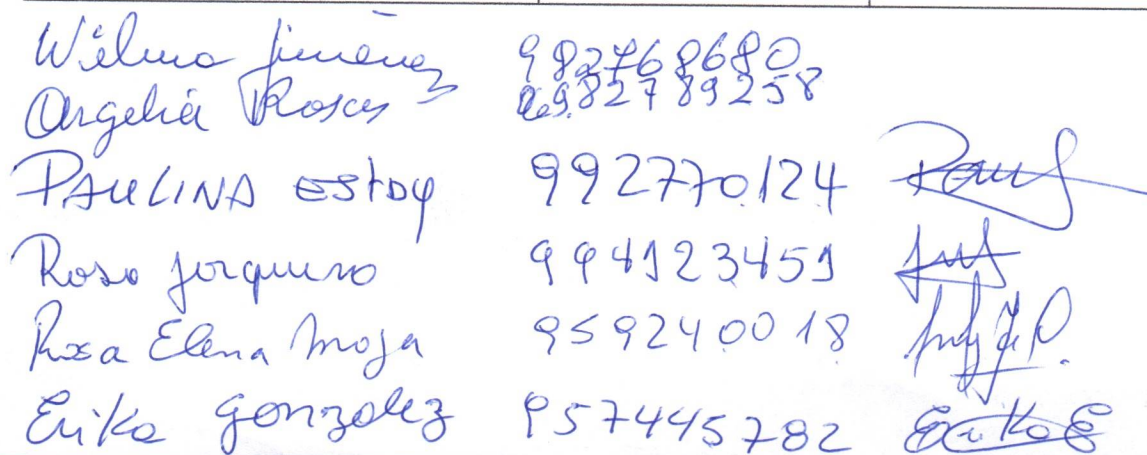 Wilma Jimenez 982768680
Argelia Rosas 982789258
PAULINA ESTAY 992770124
Rosa Jorquera 994123451
Rosa Elena Moya 959240018
Erika Gonzalez 957445782 Erika G